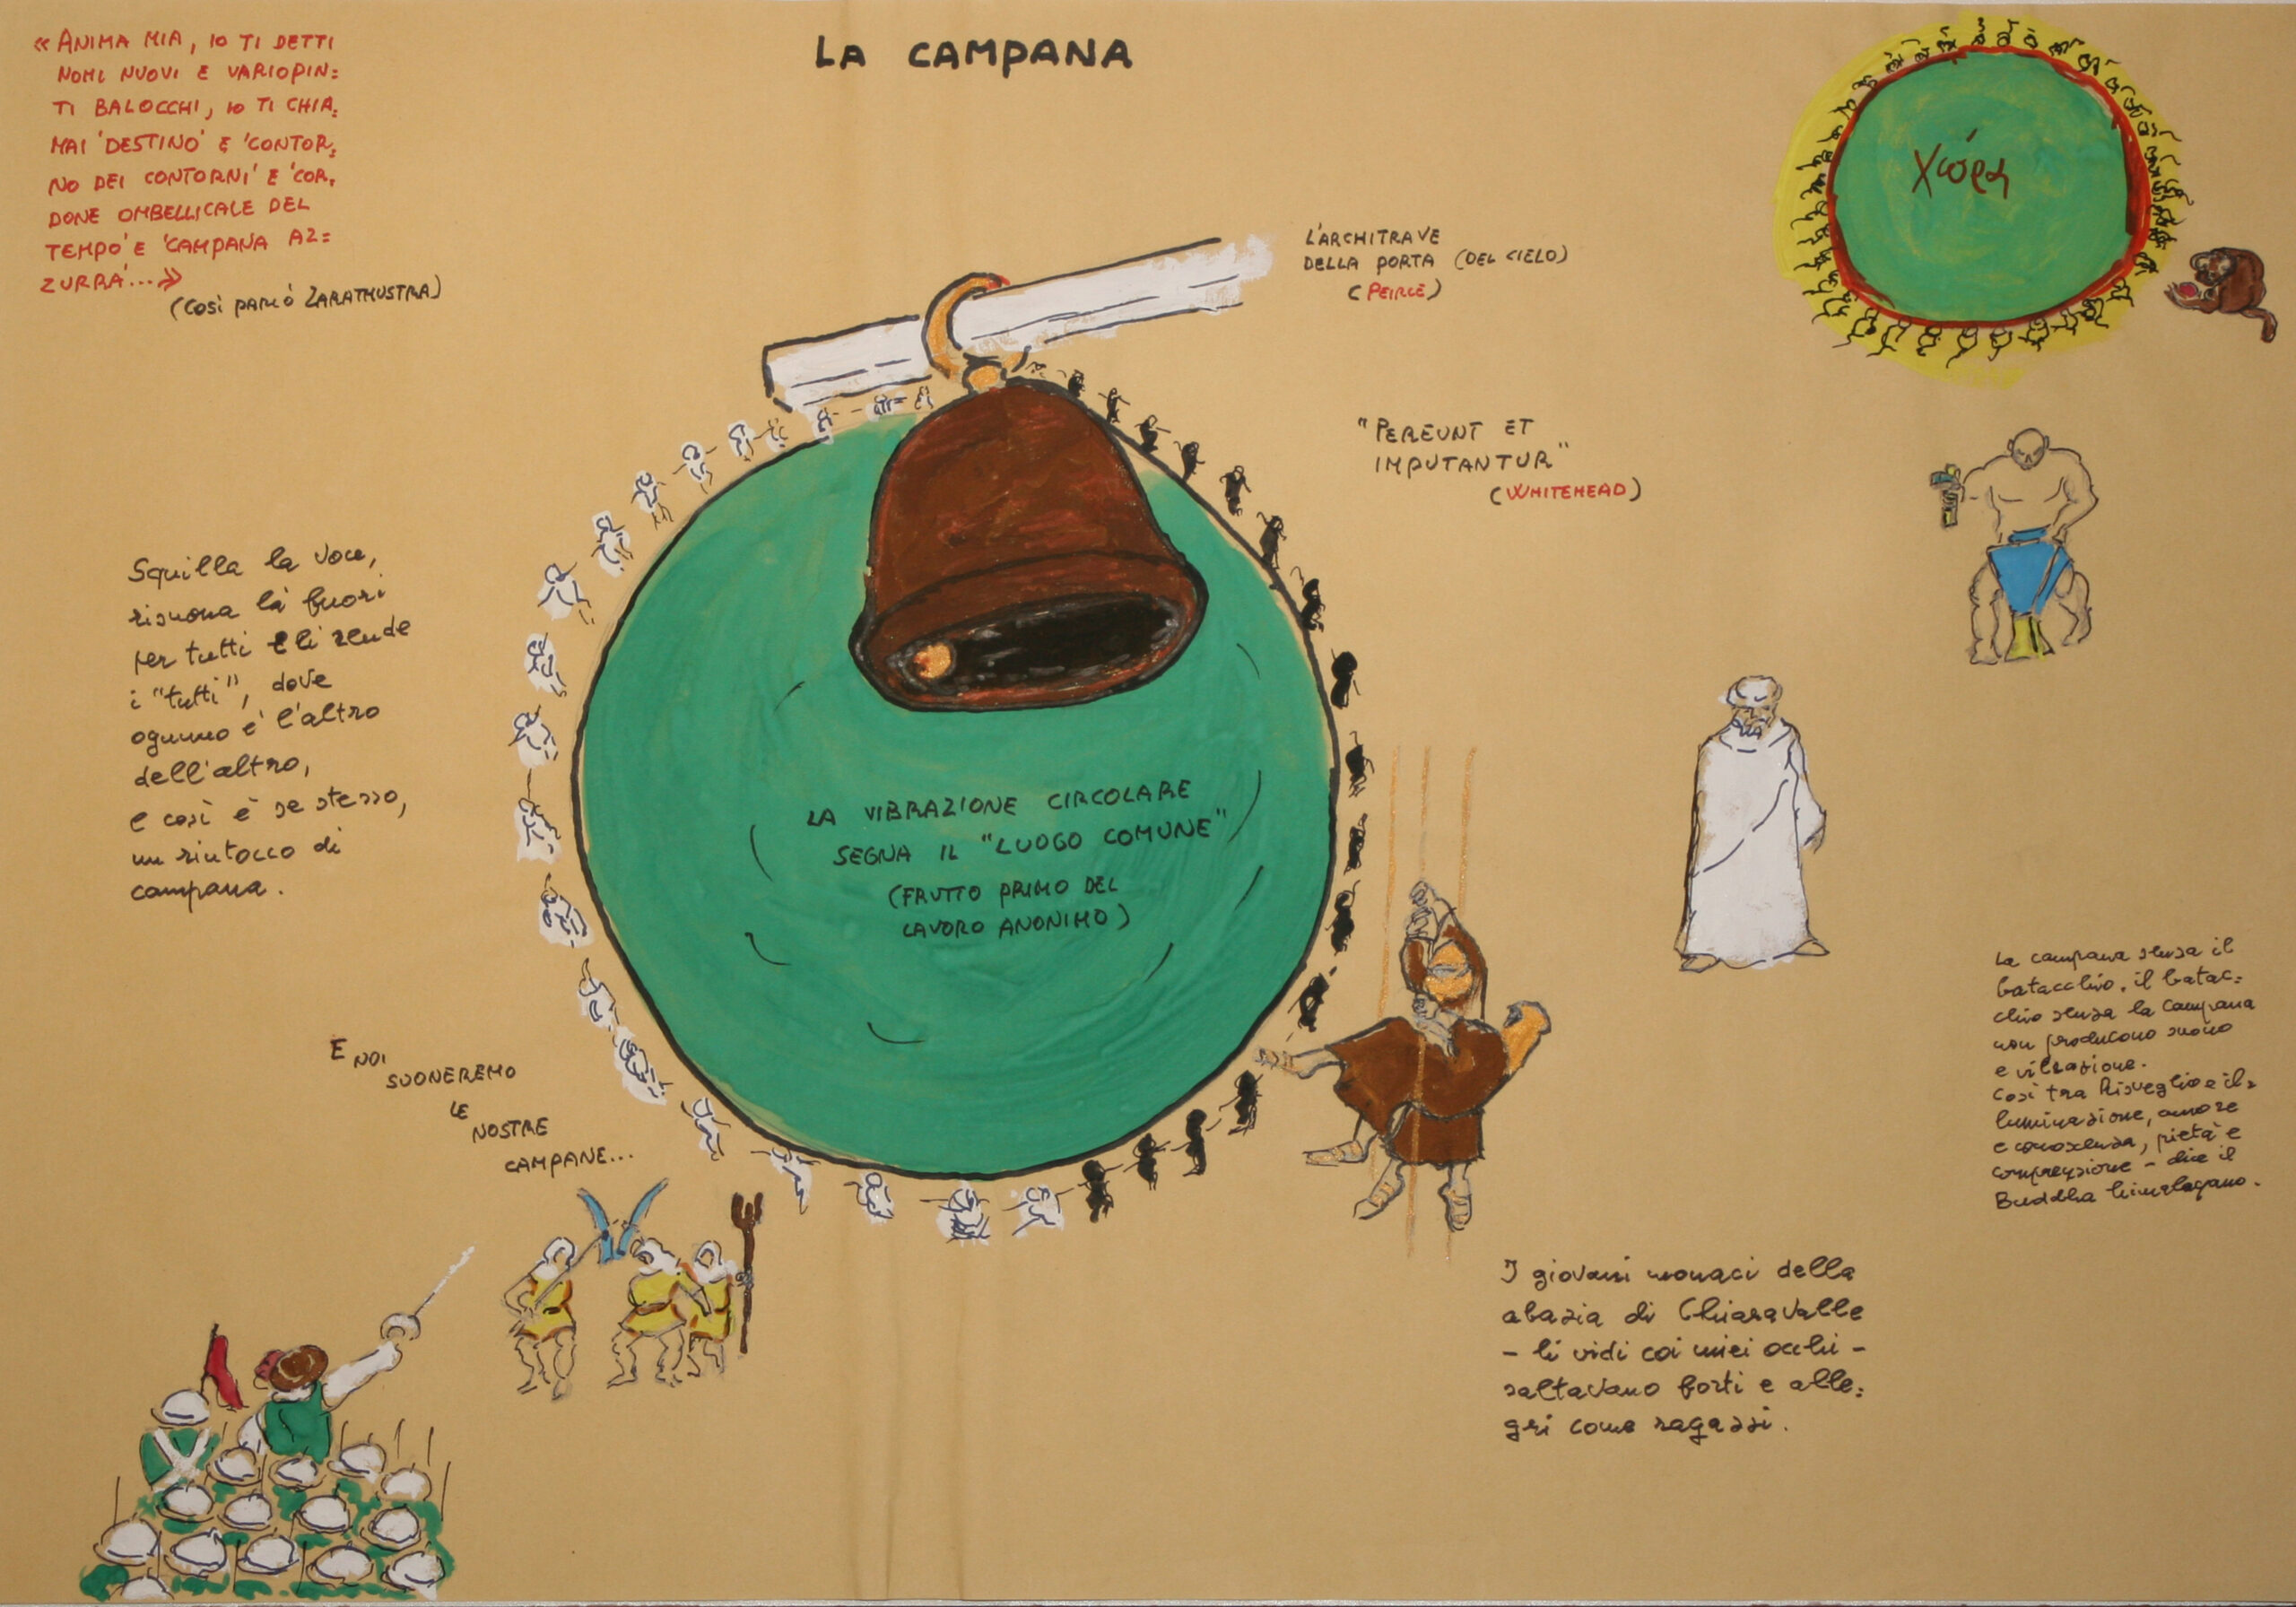 LA CAMPANA
« ANIMA MIA, IO TI DETTI
NOMI NUOVI E VARIOPIN=
TI BALOCCHI, IO TI CHIA=
MAI 'DESTINO' E 'CONTOR=
NO DEI CONTORNI' E 'COR=
DONE OMBELLICALE DEL
TEMPO' E 'CAMPANA AZ=
ZURRA'...»
(COSÌ PARLÒ ZARATHUSTRA)
χώρα
L'ARCHITRAVE
DELLA PORTA (DEL CIELO)
(PEIRCE)
"PEREUNT ET
IMPUTANTUR"
(WHITEHEAD)
Squilla la voce,
risuona là fuori
per tutti e li rende
i "tutti", dove
ognuno è l'altro
dell'altro,
e così è se stesso,
un rintocco di
campana.
LA VIBRAZIONE CIRCOLARE
SEGNA IL "LUOGO COMUNE"
(FRUTTO PRIMO DEL
LAVORO ANONIMO)
E NOI
SUONEREMO
LE
NOSTRE
CAMPANE...
La campana senza il
batacchio, il batac=
chio senza la campana
non producono suono
e vibrazione.
Così tra Risveglio e il=
luminazione, amore
e conoscenza, pietà e
comprensione – dice il
Buddha himalayano.
I giovani monaci della
abazia di Chiaravalle
– li vidi coi miei occhi –
saltavano forti e alle=
gri come ragazzi.